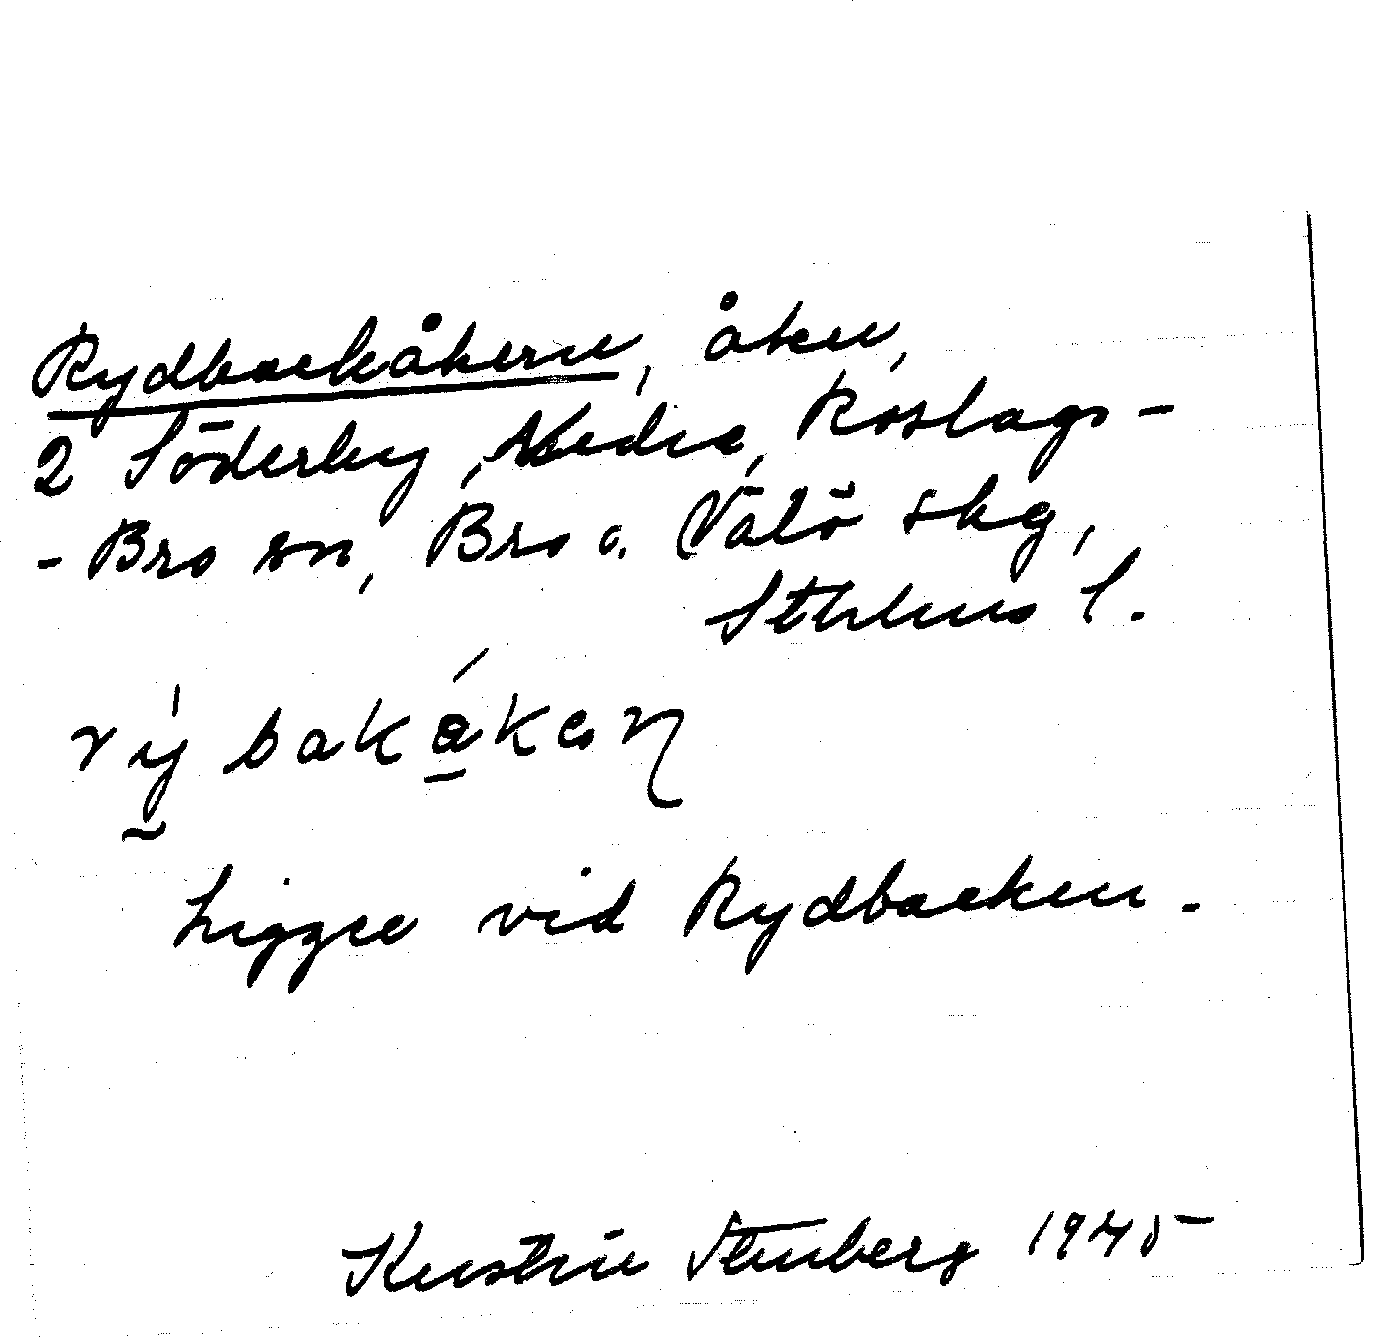 Rydbackåkern, åker,
2 Söderby, Nedre, Roslags-
- Bro sn, Bro o. Vätö skg,
Sthlms l.
rýbakåkan
Ligger vid Rydbacken.
Kerstin Stenberg 1945